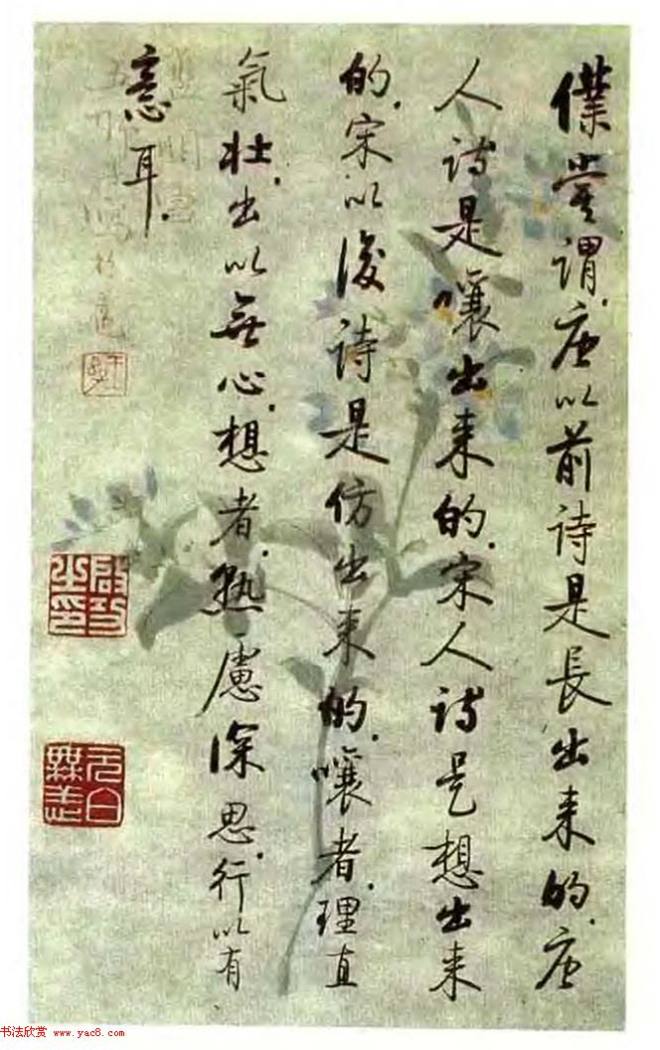 僕嘗謂.唐以前詩是長出来的.唐
人詩是嚷出来的.宋人詩是想出来
的.宋以後詩是仿出来的.嚷者.理直
氣壯.出以無心.想者.熟慮深思.行以有
意耳.
啟功之印
元白無恙
书法欣赏 www.yac8.com